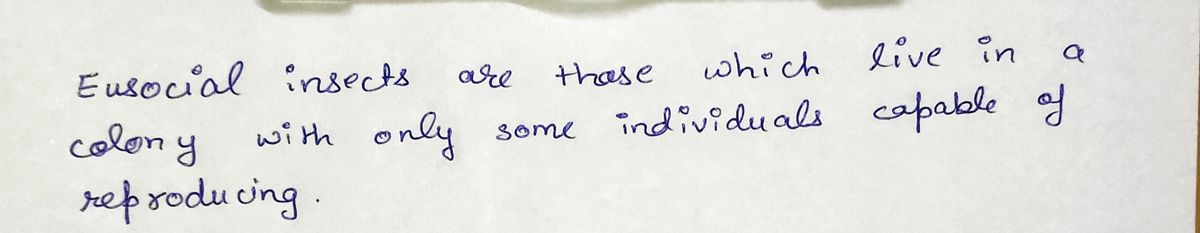 Eusocial insects are those which live in a
colony with only some individuals capable of
reproducing.